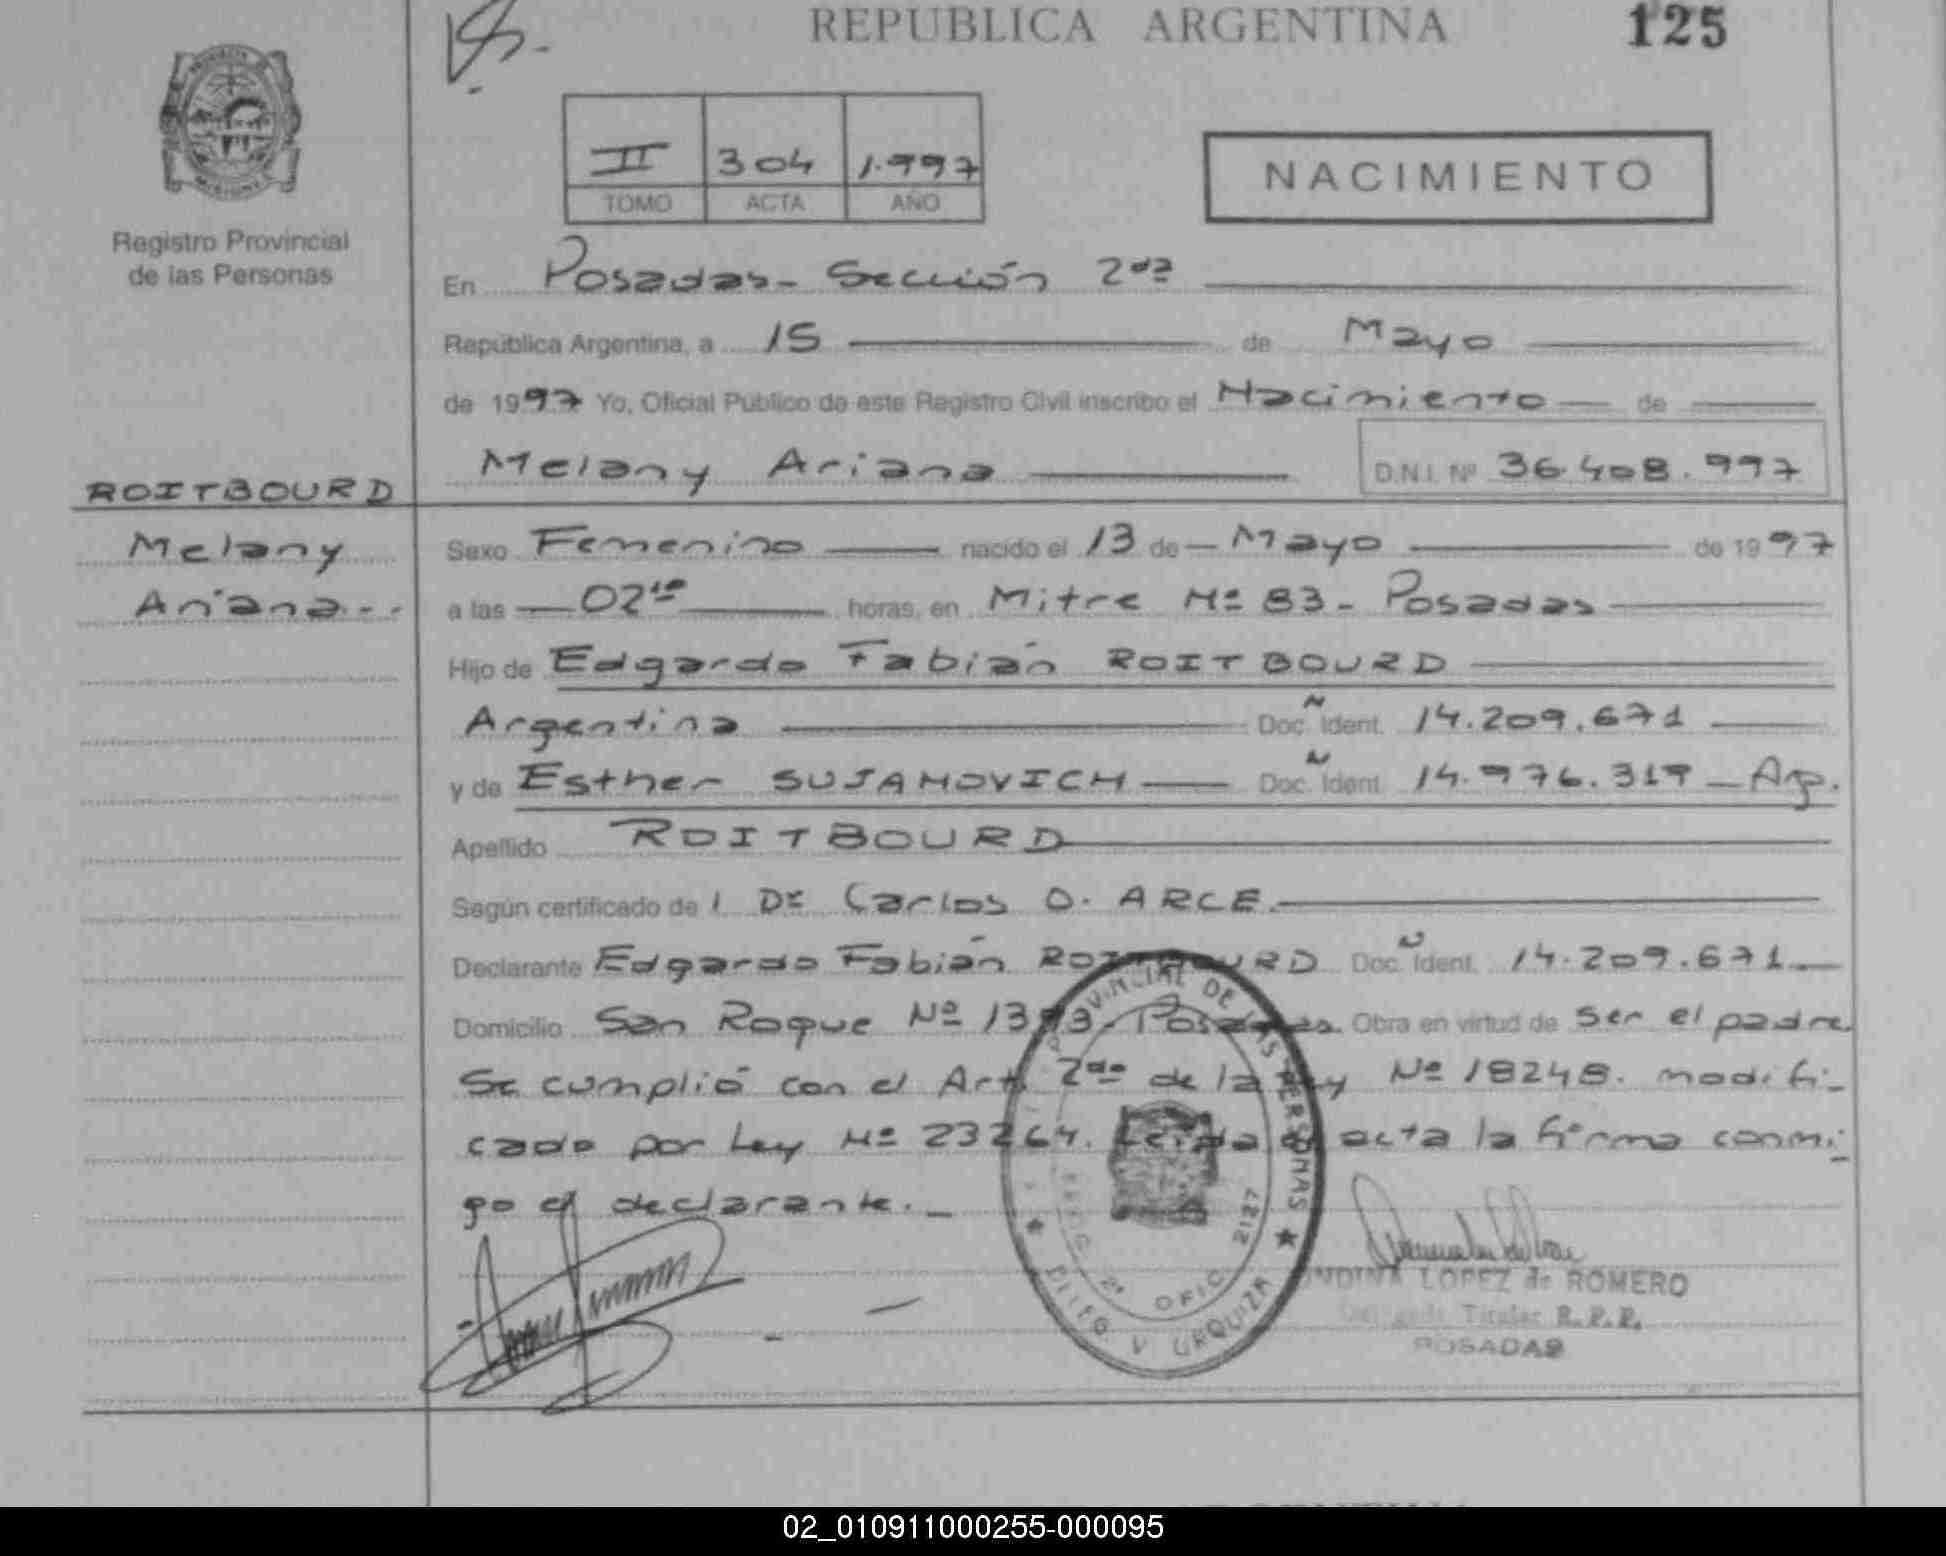 REPUBLICA ARGENTINA
125
II 304 1.997
TOMO ACTA AÑO
NACIMIENTO
Registro Provincial
de las Personas
En Posadas - Sección 2da
República Argentina, a 15 de Mayo
de 1997 Yo, Oficial Público de este Registro Civil inscribo el Nacimiento de
Melany Ariana D.N.I. Nº 36.408.997
ROITBOURD
Melany
Ariana
Sexo Femenino nacido el 13 de Mayo de 1997
a las 02 horas, en Mitre Nº 83 - Posadas
Hijo de Edgardo Fabián ROITBOURD
Argentina Doc. Ident. 14.209.671
y de Esther SUJANOVICH Doc. Ident. 14.976.319 - Arg.
Apellido ROITBOURD
Según certificado de l Dr Carlos O. ARCE.
Declarante Edgardo Fabián ROITBOURD Doc. Ident. 14.209.671
Domicilio San Roque Nº Posadas. Obra en virtud de ser el padre
Se cumplió con el Art. 2do de la Ley Nº 18248. modifi-
cado por Ley Nº 23264. Leída el acta la firma conmi-
go el declarante.
PROVINCIAL DE LAS PERSONAS
2º OFIC. 2127
V URQUIZA
LOPEZ de ROMERO
Titular R.P.P.
POSADAS
02_010911000255-000095